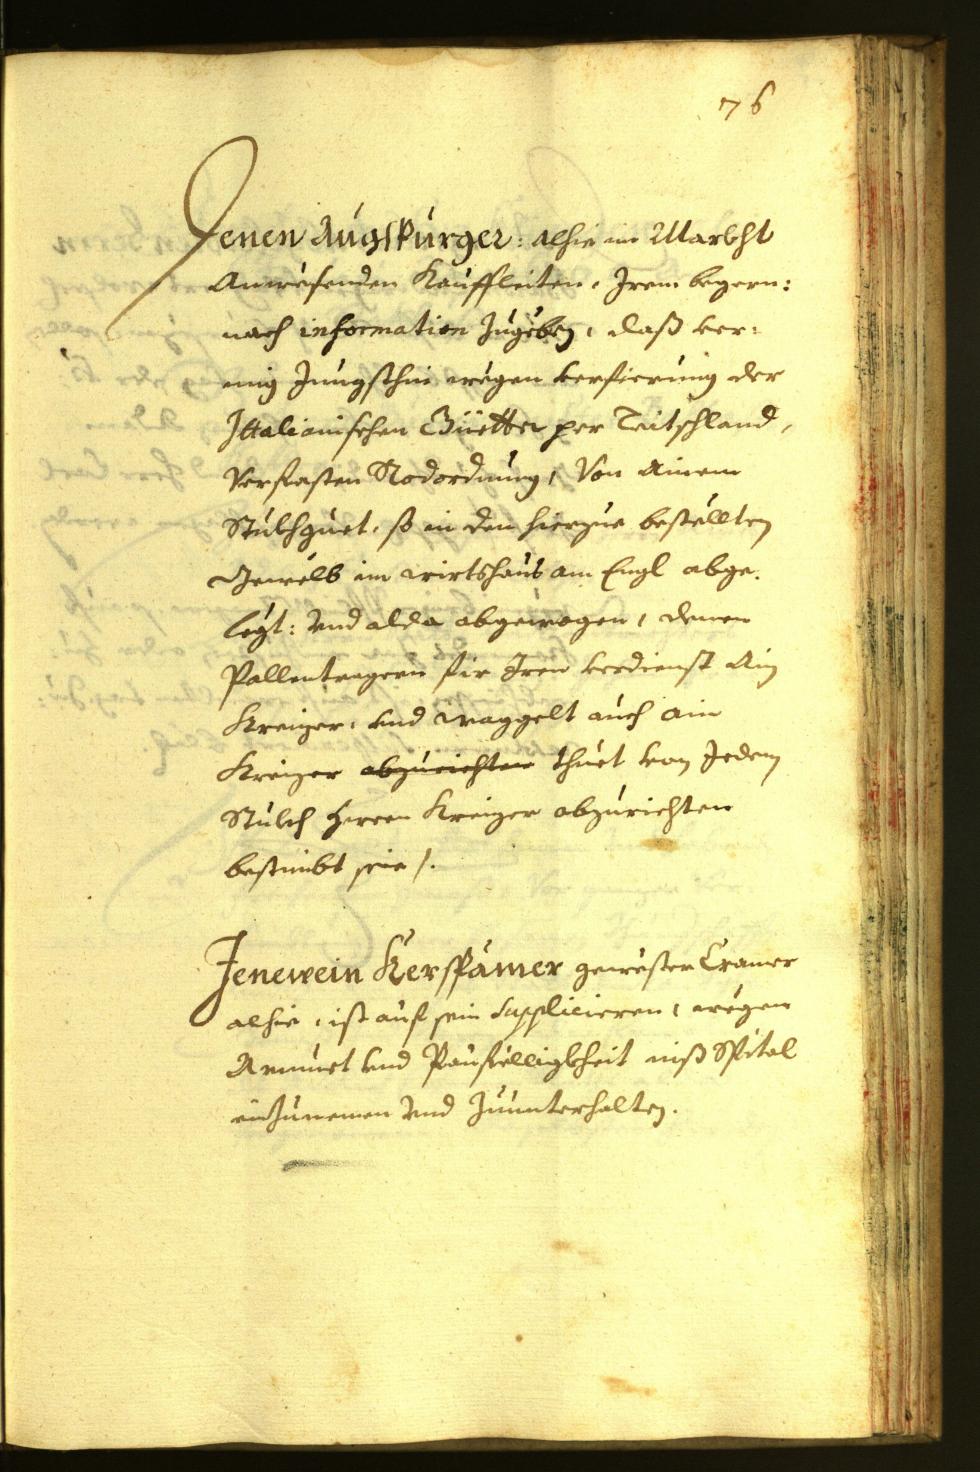 76
Jenen Augspurger: alhie im Marckht
Anwesenden Kauffleiten, Irem begern:
nach information zugeben, daß ver:
mig Jungsthin wegen verfierung der
Ittalianischen Güetter per Teitschland,
Verfasten Rodordnung, Von Ainem
Stuckhguet, so in den hierzue bestellten
Gewelb im wirtshaus am Engl abge:
legt: und alda abgewogen, denen
Pallentragern fir Iren verdienst Ain
Kreizer, und waggelt auch ain
Kreizer abzurichten thuet von Jedem
Stuckh zween Kreizer abzurichten
bestimbt seie /.
Jenewein Kerspamer gewester Cramer
alhie, ist auf sein supplicieren, wegen
Armuet und Paufelligkheit inß Spital
einzunemen und zuunterhalten.